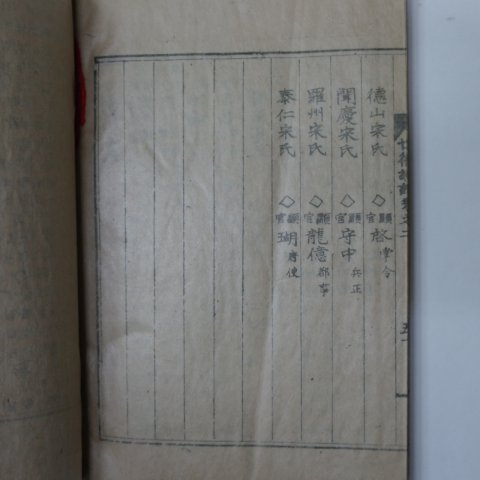 德山宋氏 ◇顯官 啓 掌令
聞慶宋氏 ◇顯官 守中 兵正
羅州宋氏 ◇顯官 龍億 郎事
泰仁宋氏 ◇顯官 瑚 府使